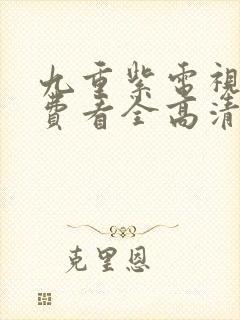 九重紫電視
費看全高清
克里恩